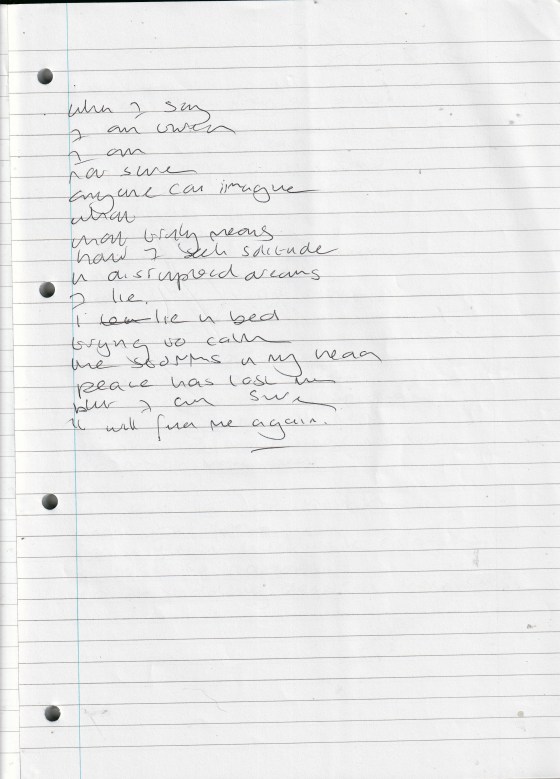 when I say
I am
I am
not sure
anyone can imagine
what
that truly means
how I seek solitude
in disrupted dreams
I lie.
i lie in bed
trying to calm
the storms in my head
peace has lost me
but I am sure
it will find me again.